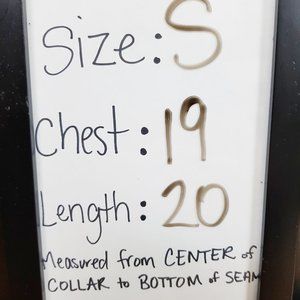 Size: S
Chest: 19
Length: 20
Measured from CENTER of
COLLAR to BOTTOM of SEAM